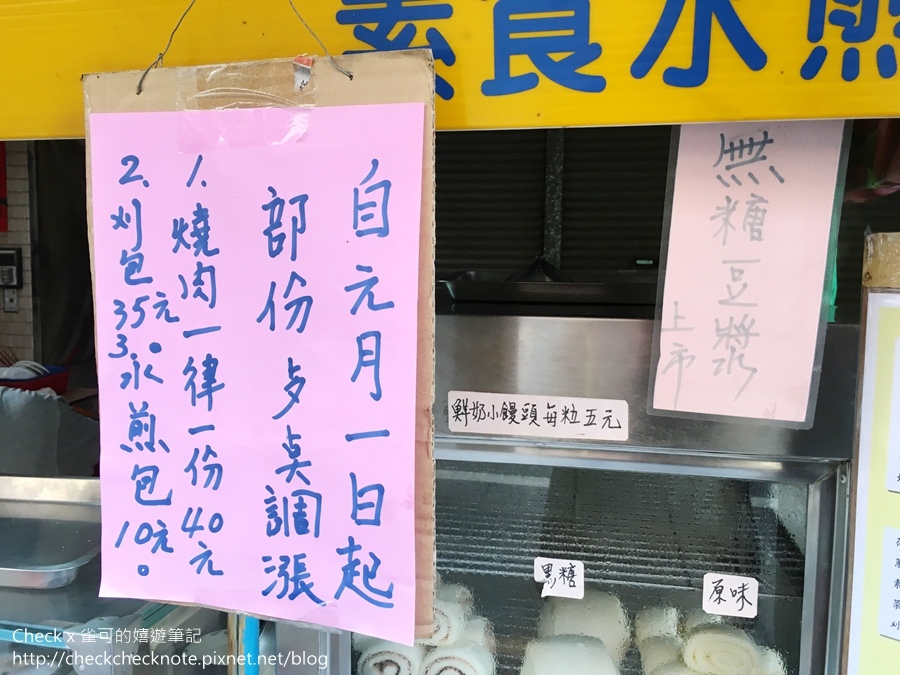 素食水煎
自元月一日起
部份歺奌調漲
1.燒肉一律一份40元
2.刈包35元
3.水煎包10元。
無糖豆漿
上市
鮮奶小饅頭每粒五元
黑糖
原味
Check x 雀可的嬉遊筆記
http://checkchecknote.pixnet.net/blog